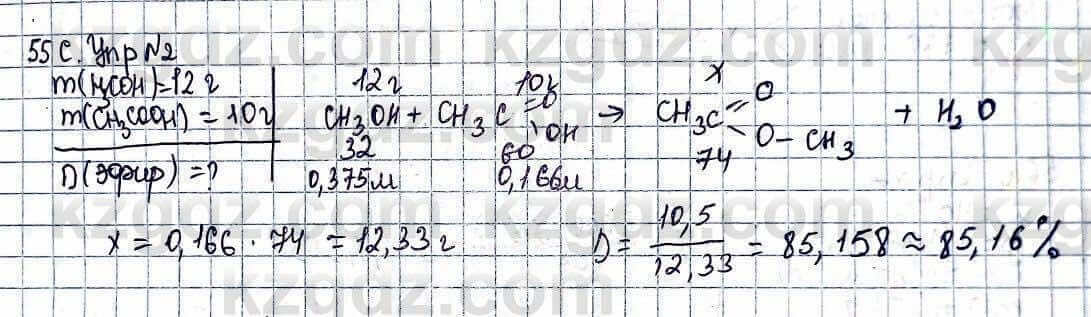 55 с. Упр №2
m(H₃COH)=12 г
m(CH₃COOH) = 10 г
D(эфир) = ?
12 г 10 г x
CH₃OH + CH₃C =O OH → CH₃C =O O-CH₃ + H₂O
32 60 74
0,375м 0,166м
x = 0,166 · 74 = 12,33 г D = 10,5 / 12,33 = 85,158 ≈ 85,16 %
kzgdz.com